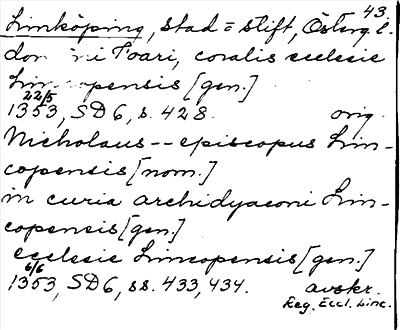 43.
Linköping, stad = stift, Österg. l.
Joari, coralis ecclesie
Lincopensis [gen.]
22/5
1353, SD6, s. 428. orig.
Nicholaus -- episcopus Lin-
copensis [nom.]
in curia archidyaconi Lin-
copensis [gen.]
ecclesie Lincopensis [gen.]
6/6
1353, SD6, ss. 433, 434. avskr.
Reg. Eccl. Linc.